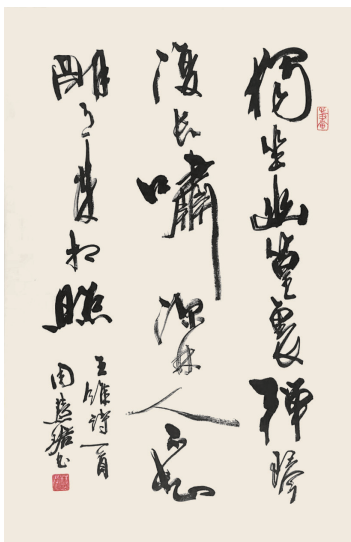 獨坐幽篁裏彈琴
復長嘯深林人不知
明月來相照
王維詩一首
周慧珺書